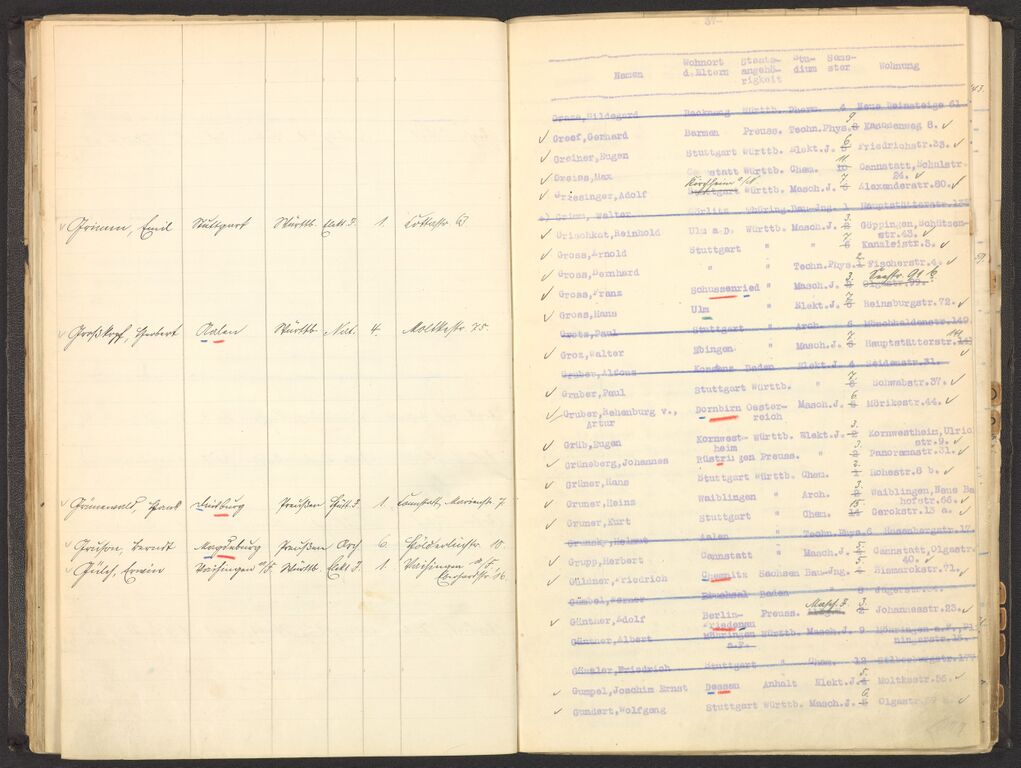 Grimm, Emil Stuttgart Württb. Elekt. J. 1. Cottastr. 63
Großkopf, Herbert Aalen Württb. 4. Moltkestr. 75.
Grünewald, Frank Duisburg Preußen 1. Cannstatt, Marienstr. 7
Gruson, Berndt Magdeburg Preußen Arch 6. Hölderlinstr. 10.
Gülch, Erwin Vaihingen a/F. Württb. Elekt. J. 1. Vaihingen a/F.
16.
37-
Namen Wohnort Staats- Stu- Seme- Wohnung
d.Eltern angehö- dium ster
rigkeit
Hildegard Backnang Württb. Pharm. 4 Neue Weinsteige 61.
✓ Greef, Gerhard Barmen Preuss. Techn.Phys. 9 8 Kasosenweg 8. ✓
✓ Greiner, Eugen Stuttgart Württb. Elekt.J. 6 Friedrichstr.33. ✓
✓ Greiss, Max Cannstatt Württb. Chem. 11 10 Cannstatt, Schulstr.
24. ✓
✓ Griesinger, Adolf Kirchheim Stuttgart Württb. Masch.J. 7 Alexanderstr.80. ✓
Grimm, Walter Görlitz Thüring. Bau-Ing. 1 Hauptstätterstr.
✓ Grischkat, Reinhold Ulm a.D. Württb. Masch.J. 3. Göppingen, Schützen-
str.43. ✓
✓ Gross, Arnold Stuttgart " " 7 Kanzleistr.3. ✓
✓ Gross, Bernhard " " Techn.Phys. 2. 1 Fischerstr.4. ✓
✓ Gross, Franz Schussenried " Masch.J. 3. Seestr. 91
✓ Gross, Hans Ulm " Elekt.J. 7 Reinsburgstr.72. ✓
Grotz, Paul Stuttgart " Arch. 6 Mönchhaldenstr.149.
✓ Groz, Walter Ebingen " Masch.J. 7 Hauptstätterstr.
Gruber, Alfons Konstanz Baden Elekt.J. 4 Seidenstr.31.
✓ Gruber, Paul Stuttgart Württb. " 7 Schwabstr.37. ✓
✓ Gruber, Rehenburg v., Dornbirn Oester- Masch.J. 6 Mörikestr.44. ✓
Artur reich
✓ Grüb, Eugen Kornwest- Württb. Elekt.J. 3. 2 Kornwestheim, Ulrich
heim str.9. ✓
✓ Grüneberg, Johannes Rüstringen Preuss. " 3. Panoramastr.31. ✓
✓ Grüner, Hans Stuttgart Württb. Chem. 2. Hohestr.8 b. ✓
✓ Gruner, Heinz Waiblingen " Arch. 3 Waiblingen, Neue Ba
hofstr.66. ✓
✓ Gruner, Kurt Stuttgart " Chem. 15. 14 Gerokstr.13 a. ✓
Helmut Aalen " Techn.Phys. 6 Hasenbergstr.17.
✓ Grupp, Herbert Cannstatt " Masch.J. 5. Cannstatt, Olgastr.
40. ✓
✓ Güldner, Friedrich Chemnitz Sachsen Bau-Ing. 5. Bismarckstr.71. ✓
Gümbel, Werner Bruchsal Baden " 8 Jägerstr.
✓ Günther, Adolf Berlin- Preuss. Masch. J. 3. 2 Johannesstr.23. ✓
Friedenau
Günther, Albert Möhringen Württb. Masch.J. 9 Möhringen a.F., Pli
a.F. ningerstr.15.
Friedrich Stuttgart " Chem. 12 Silberburgstr.177
✓ Gumpel, Joachim Ernst Dessau Anhalt Elekt.J. 5. 4 Moltkestr.56. ✓
✓ Gundert, Wolfgang Stuttgart Württb. Masch.J. 6. 5 Olgastr. ✓